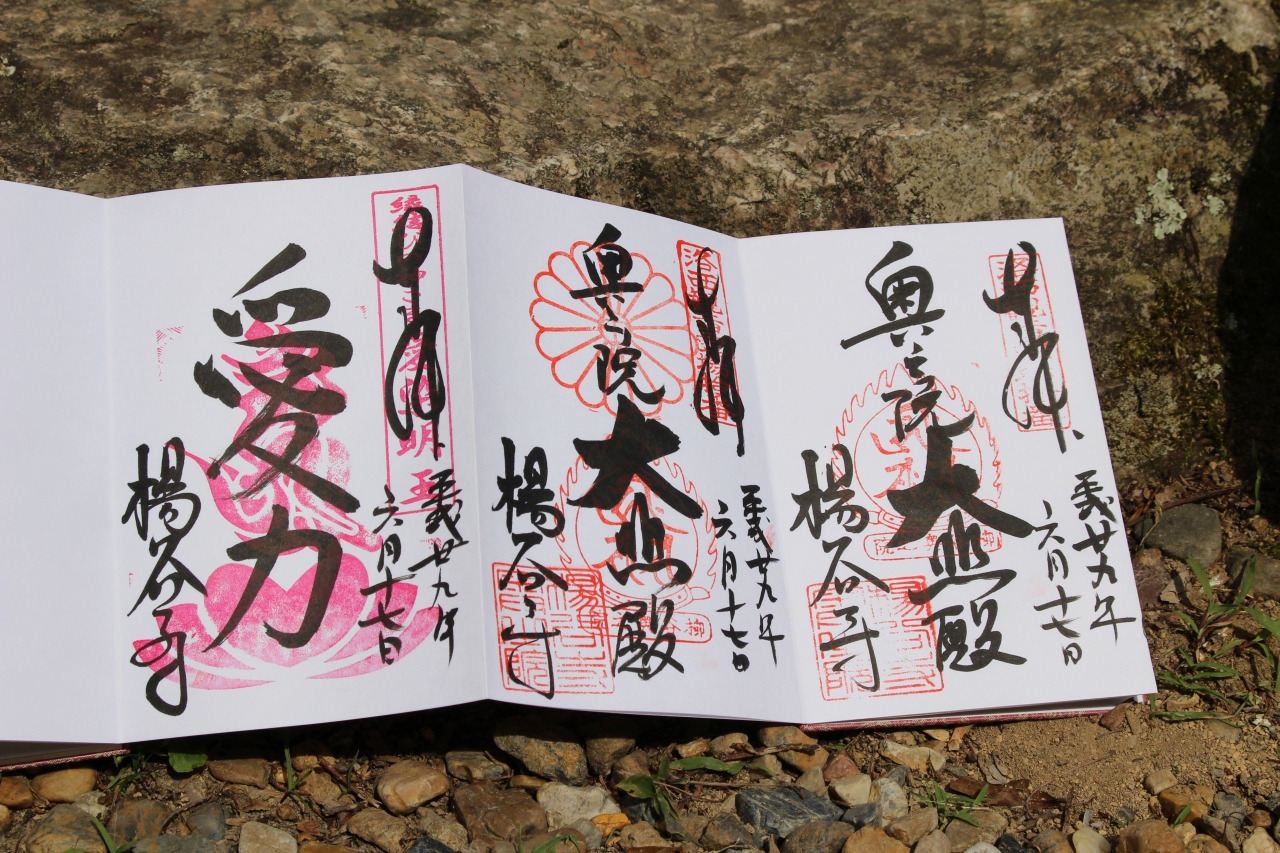 奉拝
平成廿九年
六月十七日
奥之院
大悲殿
楊谷寺
奉拝
平成廿九年
六月十七日
奥之院
大悲殿
楊谷寺
奉拝
明王
平成廿九年
六月十七日
愛力
楊谷寺